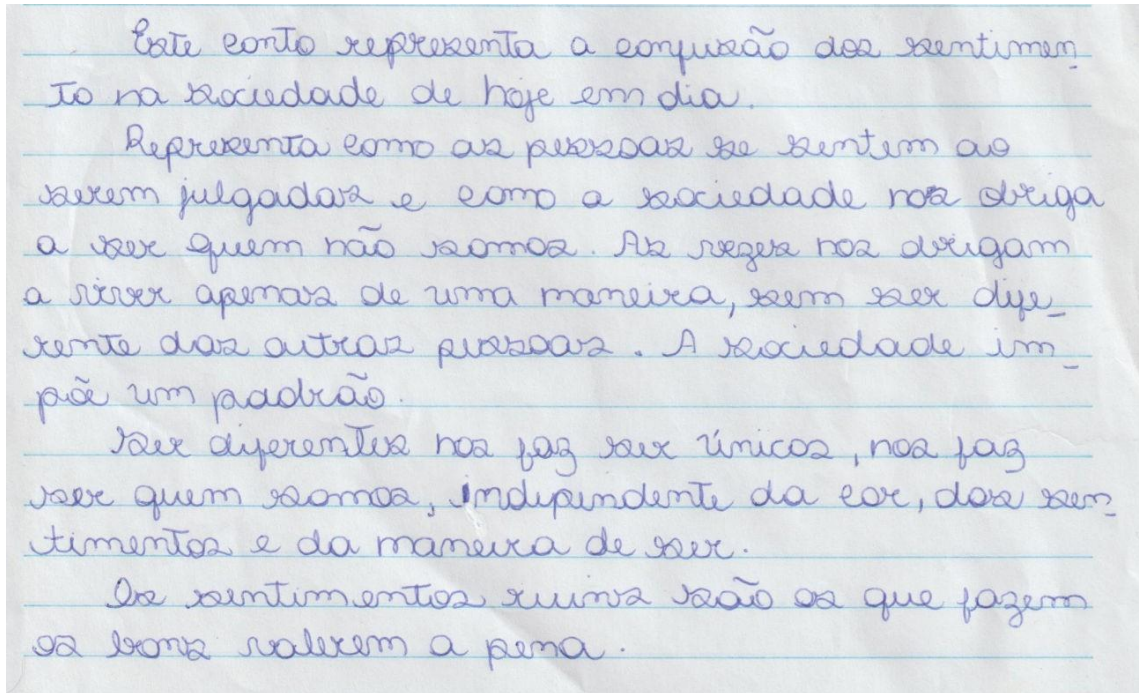 Este conto representa a confusão dos sentimen_
to na sociedade de hoje em dia.
Representa como as pessoas se sentem ao
serem julgadas e como a sociedade nos obriga
a ser quem não somos. As vezes nos obrigam
a viver apenas de uma maneira, sem ser dife_
rente das outras pessoas. A sociedade im_
põe um padrão.
Ser diferentes nos faz ser únicos, nos faz
ser quem somos, independente da cor, dos sen_
timentos e da maneira de ser.
Os sentimentos ruins são os que fazem
os bons valerem a pena.